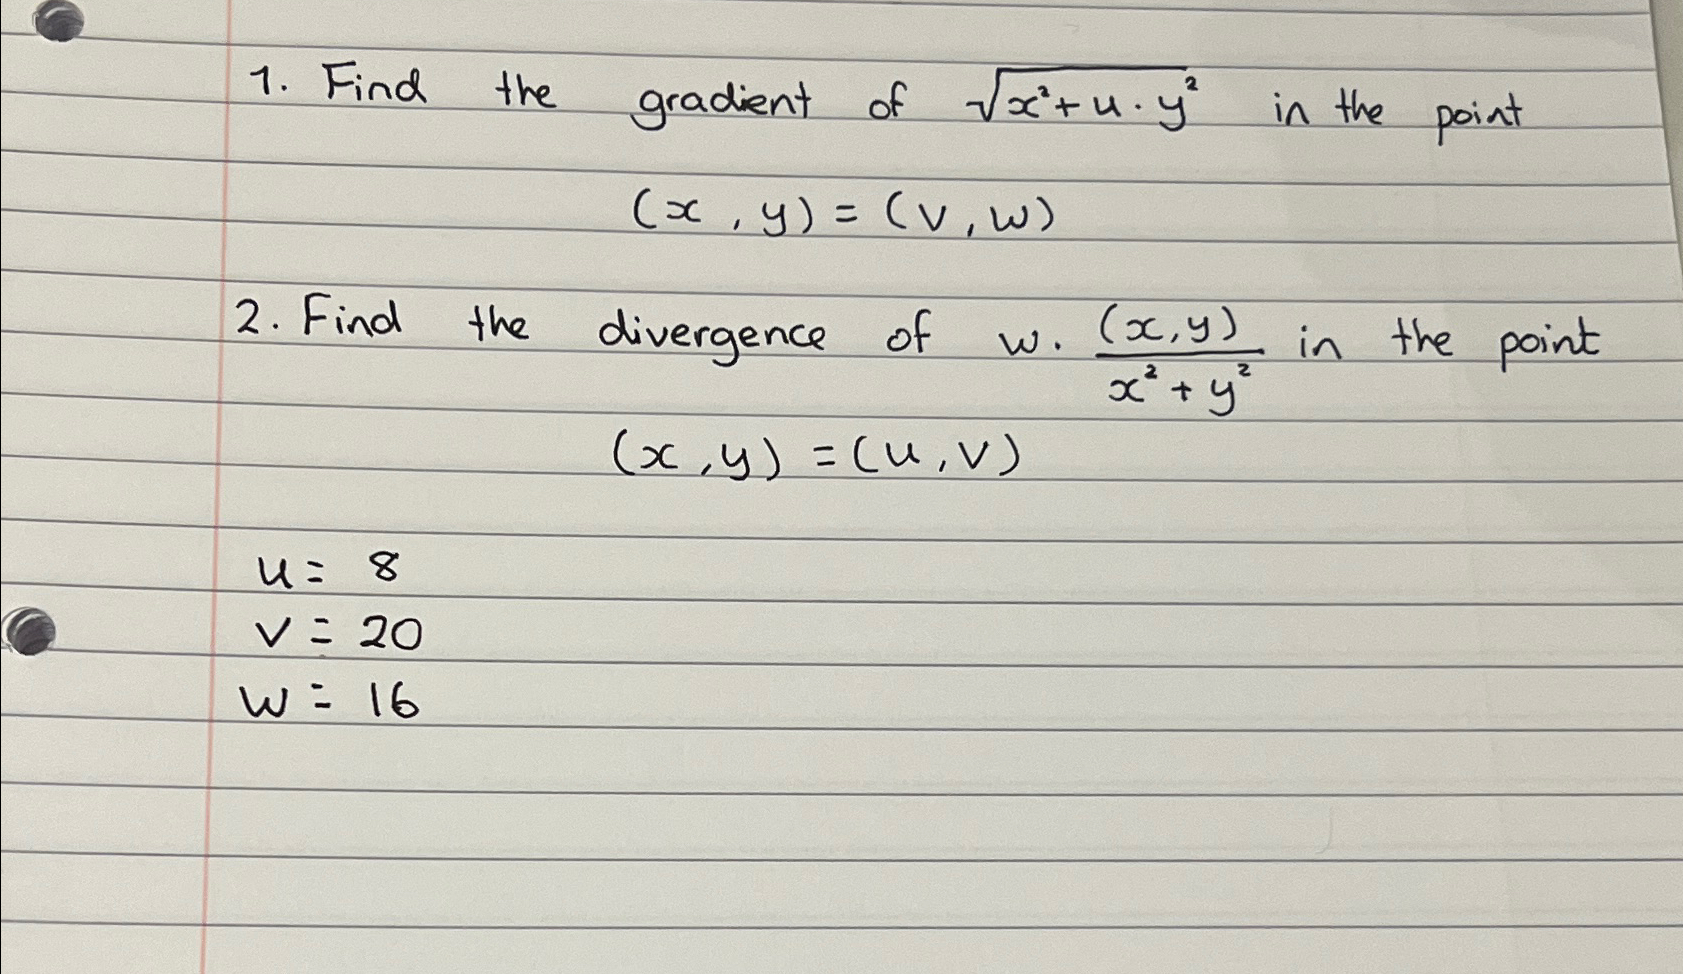 1. Find the gradient of √x²+u·y² in the point
(x, y) = (v, w)
2. Find the divergence of w. (x,y)/x²+y² in the point
(x, y) = (u, v)
u = 8
v = 20
w = 16